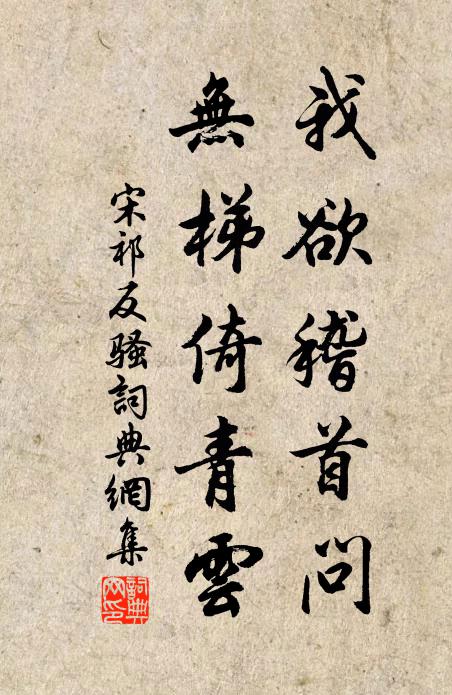 我欲稽首問
無梯倚青雲
宋祁反騷詞典網集
詞典網印